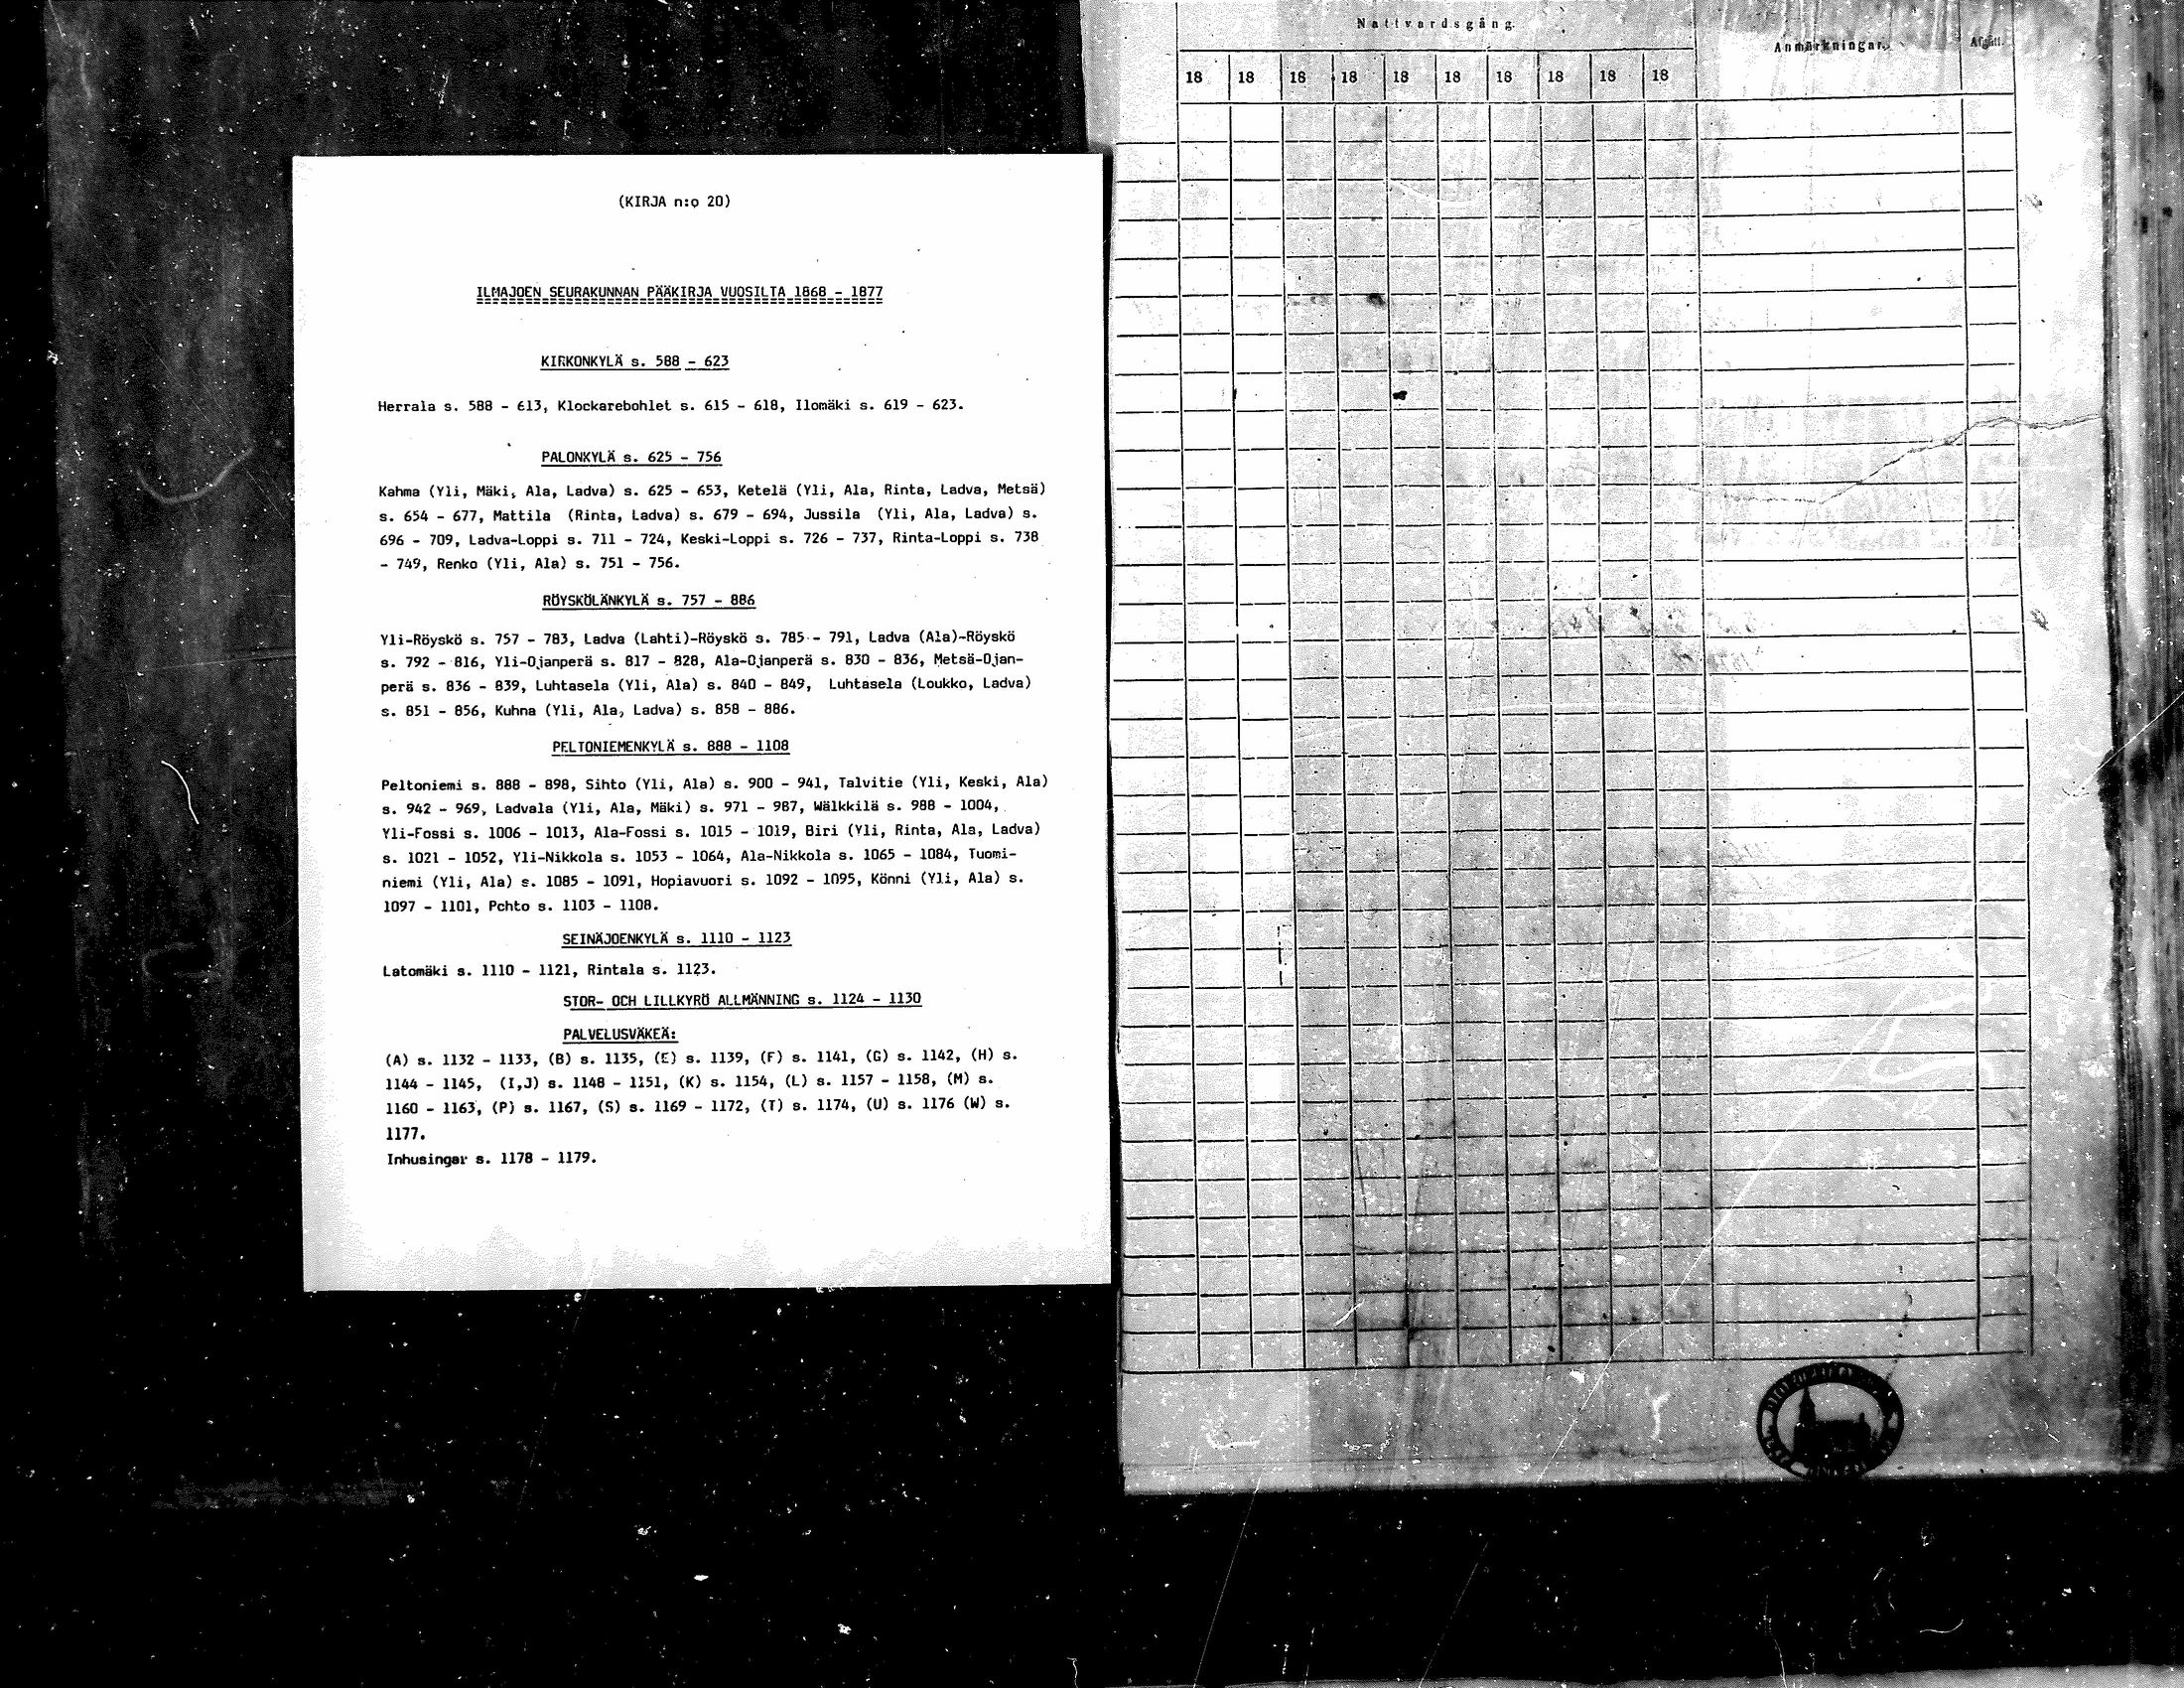 (KIRJA n:o 20)
ILMAJOEN SEURAKUNNAN PÄÄKIRJA VUOSILTA 1868 - 1877
KIRKONKYLÄ s. 588 - 623
Herrala s. 588 - 613, Klockarebohlet s. 615 - 618, Ilomäki s. 619 - 623.
PALONKYLÄ s. 625 - 756
Kahma (Yli, Mäki, Ala, Ladva) s. 625 - 653, Ketelä (Yli, Ala, Rinta, Ladva, Metsä)
s. 654 - 677, Mattila (Rinta, Ladva) s. 679 - 694, Jussila (Yli, Ala, Ladva) s.
696 - 709, Ladva-Loppi s. 711 - 724, Keski-Loppi s. 726 - 737, Rinta-Loppi s. 738
- 749, Renko (Yli, Ala) s. 751 - 756.
RÖYSKÖLÄNKYLÄ s. 757 - 886
Yli-Röyskö s. 757 - 783, Ladva (Lahti)-Röyskö s. 785 - 791, Ladva (Ala)-Röyskö
s. 792 - 816, Yli-Ojanperä s. 817 - 828, Ala-Ojanperä s. 830 - 836, Metsä-Ojan-
perä s. 836 - 839, Luhtasela (Yli, Ala) s. 840 - 849, Luhtasela (Loukko, Ladva)
s. 851 - 856, Kuhna (Yli, Ala, Ladva) s. 858 - 886.
PELTONIEMENKYLÄ s. 888 - 1108
Peltoniemi s. 888 - 898, Sihto (Yli, Ala) s. 900 - 941, Talvitie (Yli, Keski, Ala)
s. 942 - 969, Ladvala (Yli, Ala, Mäki) s. 971 - 987, Wälkkilä s. 988 - 1004,
Yli-Fossi s. 1006 - 1013, Ala-Fossi s. 1015 - 1019, Biri (Yli, Rinta, Ala, Ladva)
s. 1021 - 1052, Yli-Nikkola s. 1053 - 1064, Ala-Nikkola s. 1065 - 1084, Tuomi-
niemi (Yli, Ala) s. 1085 - 1091, Hopiavuori s. 1092 - 1095, Könni (Yli, Ala) s.
1097 - 1101, Pohto s. 1103 - 1108.
SEINÄJOENKYLÄ s. 1110 - 1123
Latomäki s. 1110 - 1121, Rintala s. 1123.
STOR- OCH LILLKYRÖ ALLMÄNNING s. 1124 - 1130
PALVELUSVÄKEÄ:
(A) s. 1132 - 1133, (B) s. 1135, (E) s. 1139, (F) s. 1141, (G) s. 1142, (H) s.
1144 - 1145, (I,J) s. 1148 - 1151, (K) s. 1154, (L) s. 1157 - 1158, (M) s.
1160 - 1163, (P) s. 1167, (S) s. 1169 - 1172, (T) s. 1174, (U) s. 1176 (W) s.
1177.
Inhusingar s. 1178 - 1179.
Nattvardsgång.
Anmärkningar.
Afgått.
18 18 18 18 18 18 18 18 18 18